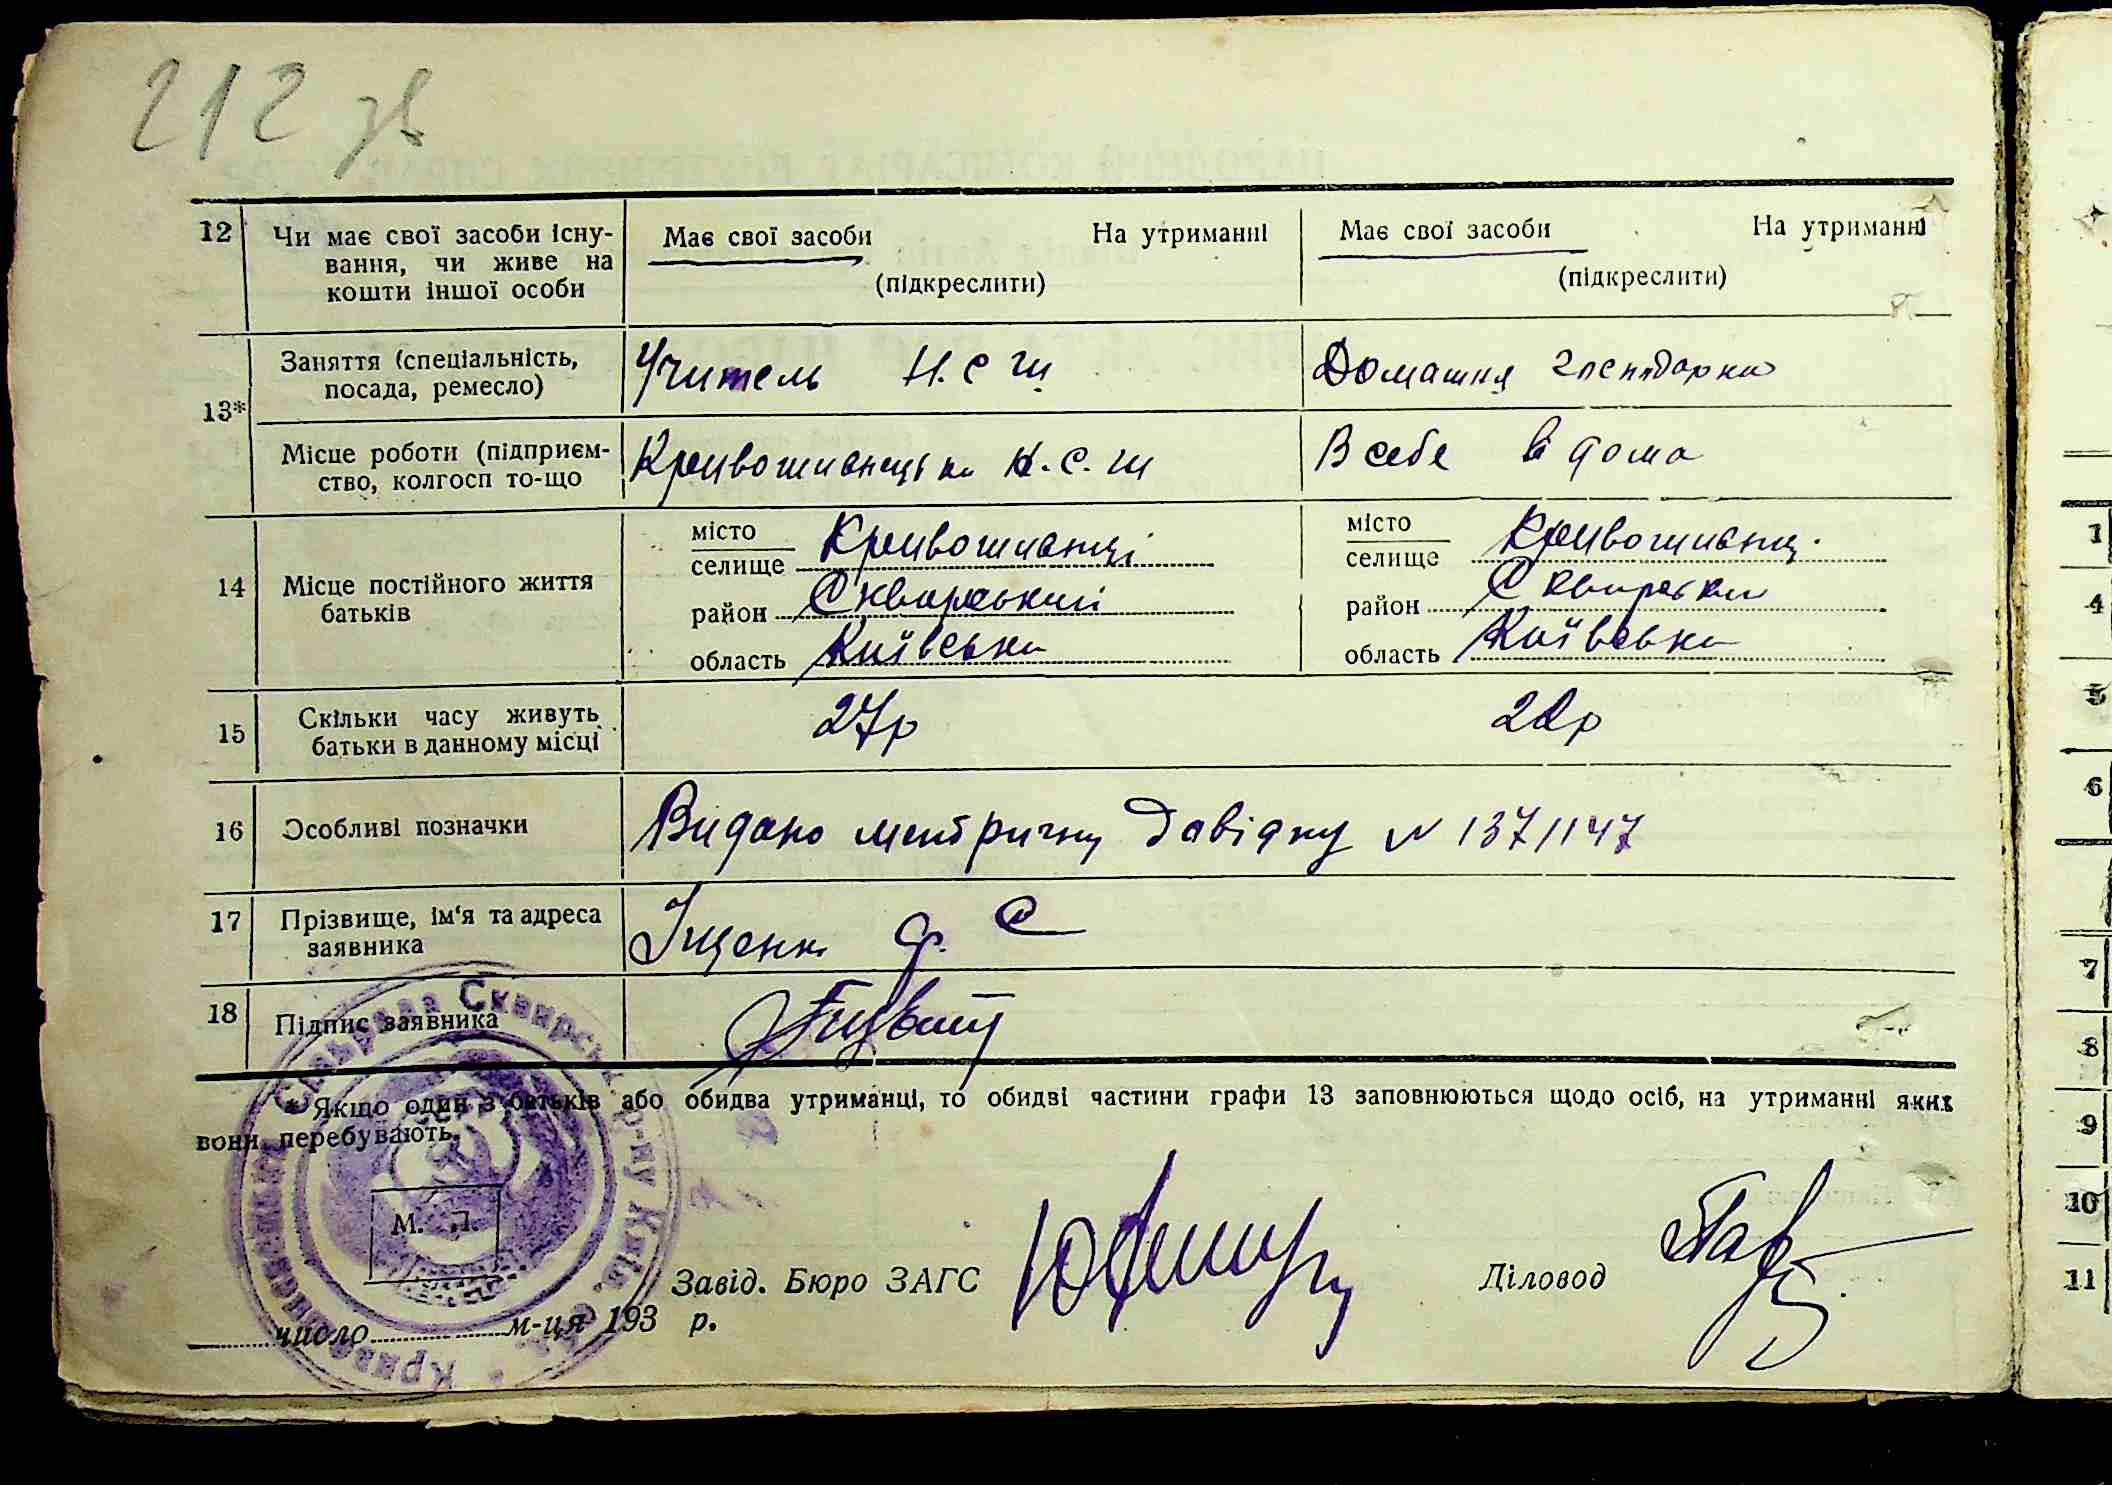 212 зв
12 Чи має свої засоби існу-
вання, чи живе на
кошти іншої особи
Має свої засоби На утриманні
(підкреслити)
Має свої засоби На утриманні
(підкреслити)
13*
Заняття (спеціальність,
посада, ремесло)
Учитель Н.С Ш
Домашня господарка
Місце роботи (підприєм-
ство, колгосп то-що
Кривошиєнцська Н.С.Ш
В себе в дома
14 Місце постійного життя
батьків
місто
селище Кривошиєнці
район Сквирський
область Київська
місто
селище Кривошиєнці
район Сквирський
область Київська
15 Скільки часу живуть
батьки в данному місці
27р
22р
16 Особливі позначки
Видано метричну довідку № 137/147
17 Прізвище, ім‘я та адреса
заявника
Іщенко С
18 Підпис заявника
* Якщо один з батьків або обидва утриманці, то обидві частини графи 13 заповнюються щодо осіб, на утриманні яких
вони перебувають.
М. П.
Завід. Бюро ЗАГС
Діловод
число м-ця 193 р.
Сквирськ. р-ну Київ.
1
4
5
6
7
8
9
10
11